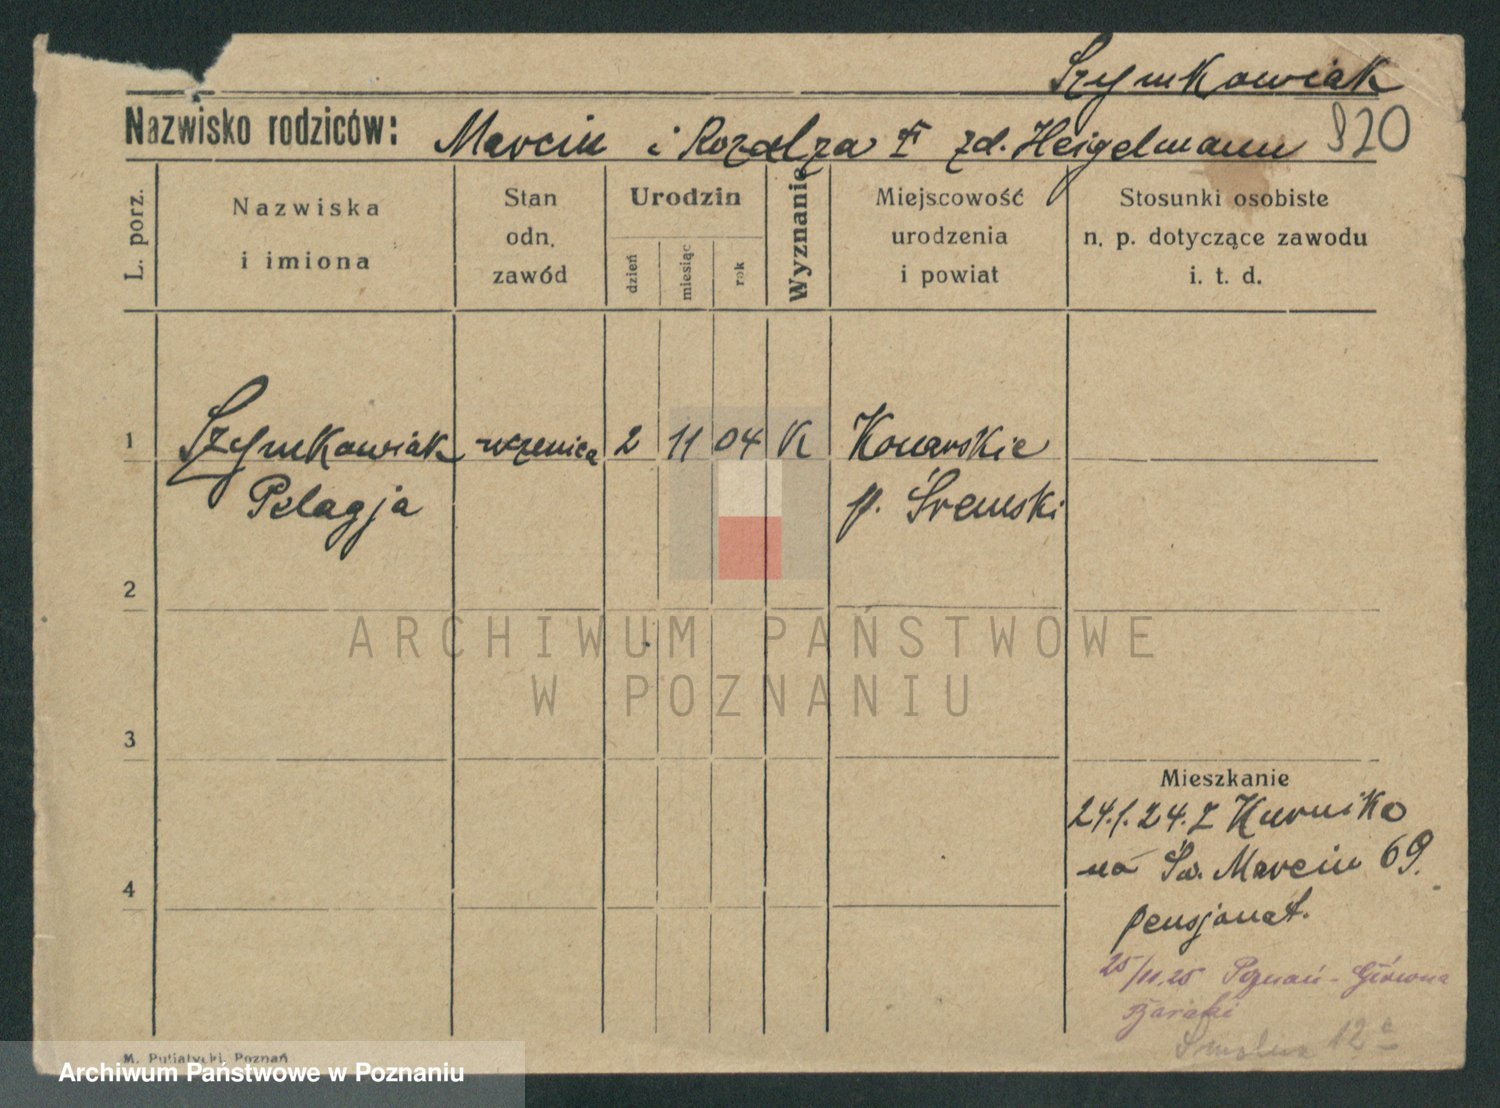 Szymkowiak
Nazwisko rodziców: Marcin i Rozalja zd. Heigelmann 820
L. porz.
Nazwiska
i imiona
Stan
odn.
zawód
Urodzin
dzień
miesiąc
rok
Wyznanie
Miejscowość
urodzenia
i powiat
Stosunki osobiste
n. p. dotyczące zawodu
i. t. d.
1 Szymkowiak uczenica 2 11 04 K Konarskie
Pelagja p. Śremski
2
ARCHIWUM PAŃSTWOWE
W POZNANIU
3
Mieszkanie
24.1.24. Z Kurnika
na Św. Marcin 69.
4
pensjonat.
25/11.25 Poznań - Główna
Baraki
Smolna 12a
M. Putiatycki, Poznań
Archiwum Państwowe w Poznaniu